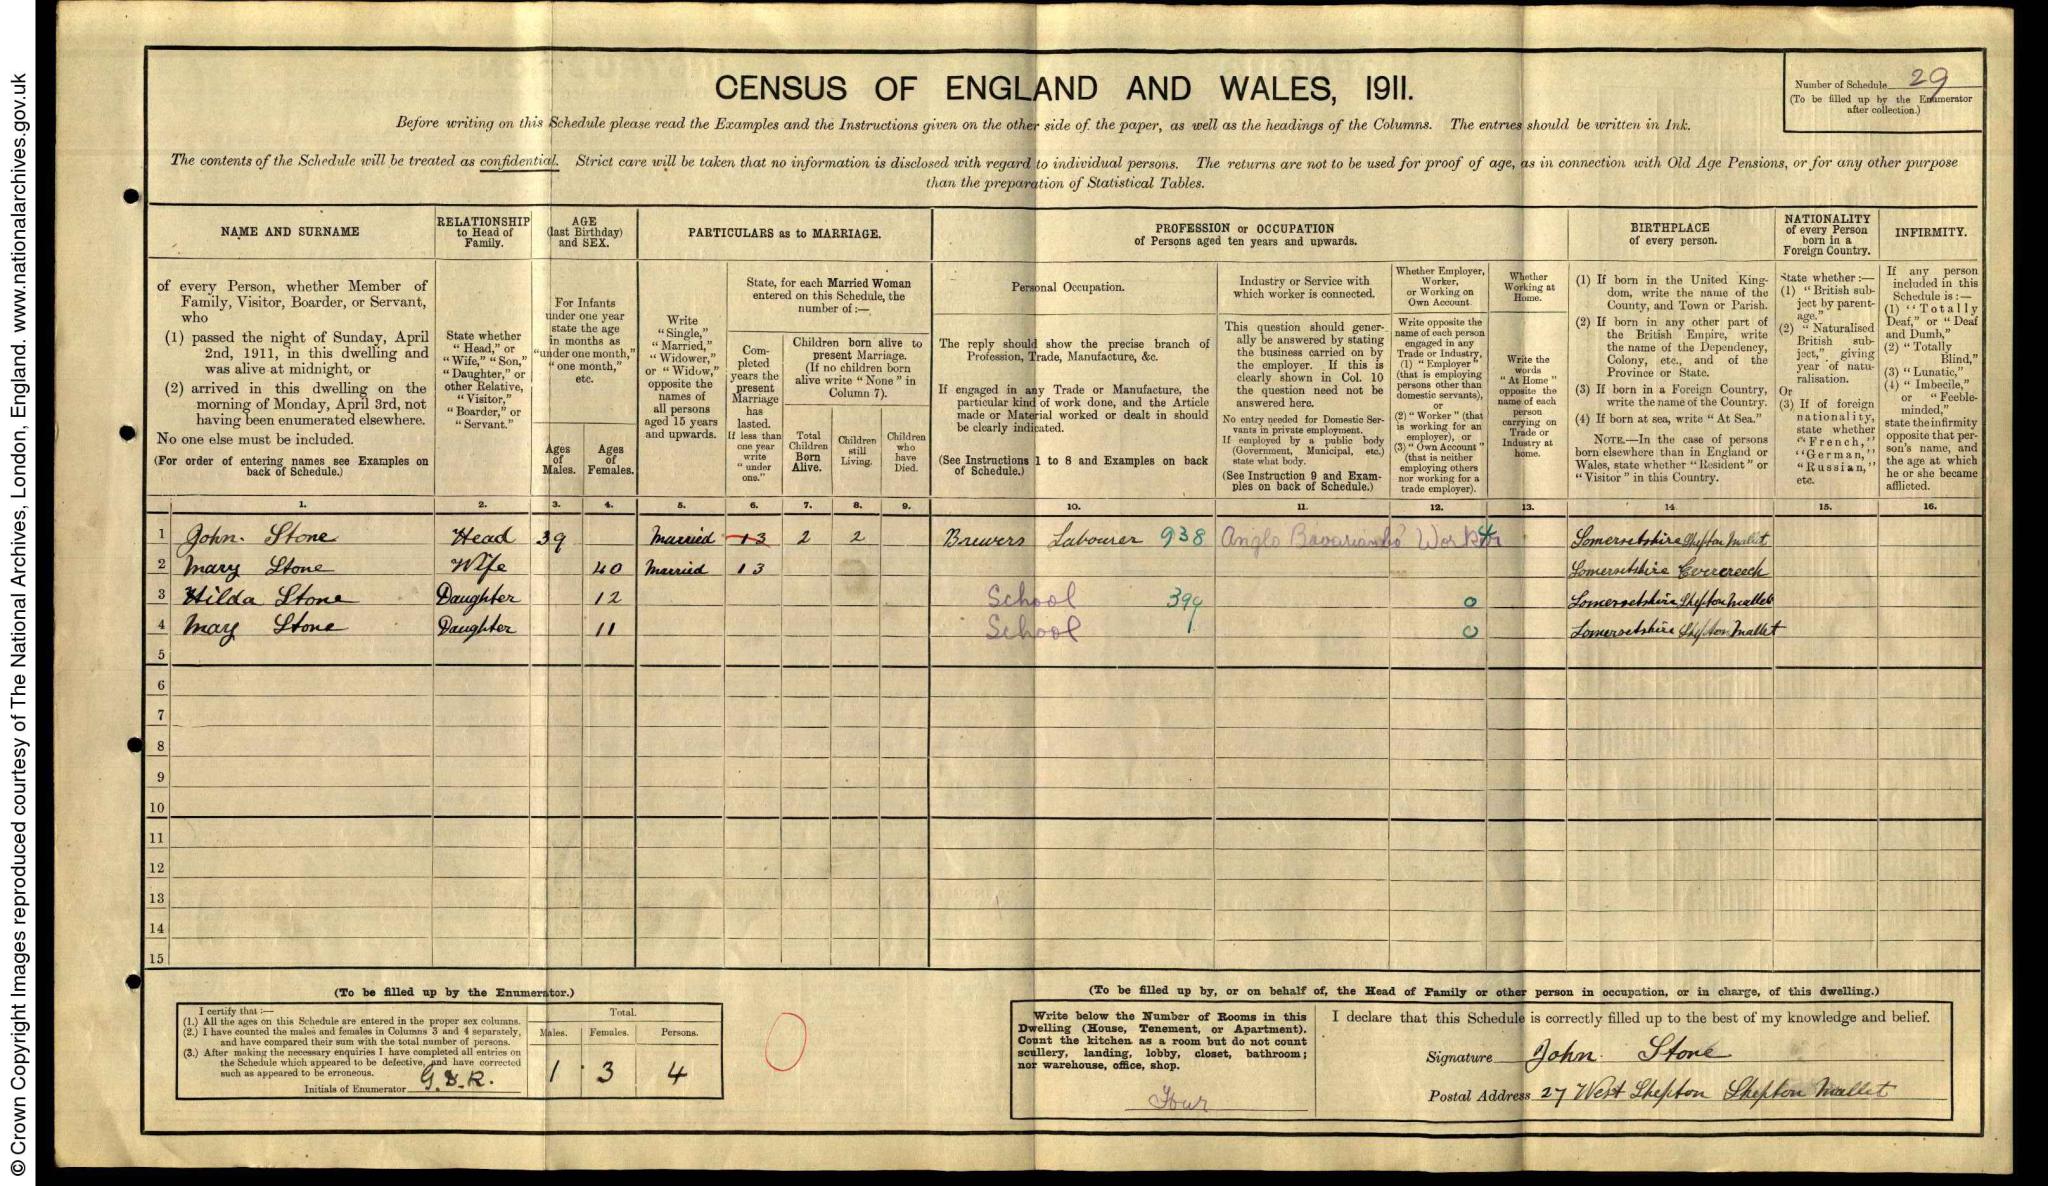 © Crown Copyright Images reproduced courtesy of The National Archives, London, England. www.nationalarchives.gov.uk
CENSUS OF ENGLAND AND WALES, 1911.
Number of Schedule 29
(To be filled up by the Enumerator
after collection.)
Before writing on this Schedule please read the Examples and the Instructions given on the other side of the paper, as well as the headings of the Columns. The entries should be written in Ink.
The contents of the Schedule will be treated as confidential. Strict care will be taken that no information is disclosed with regard to individual persons. The returns are not to be used for proof of age, as in connection with Old Age Pensions, or for any other purpose
than the preparation of Statistical Tables.
NAME AND SURNAME
of every Person, whether Member of
Family, Visitor, Boarder, or Servant,
who
(1) passed the night of Sunday, April
2nd, 1911, in this dwelling and
was alive at midnight, or
(2) arrived in this dwelling on the
morning of Monday, April 3rd, not
having been enumerated elsewhere.
No one else must be included.
(For order of entering names see Examples on
back of Schedule.)
RELATIONSHIP
to Head of
Family.
State whether
"Head," or
"Wife," "Son,"
"Daughter," or
other Relative,
"Visitor,"
"Boarder," or
"Servant."
AGE
(last Birthday)
and SEX.
For Infants
under one year
state the age
in months as
"under one month,"
"one month,"
etc.
Ages
of
Males.
Ages
of
Females.
PARTICULARS as to MARRIAGE.
Write
"Single,"
"Married,"
"Widower,"
or "Widow,"
opposite the
names of
all persons
aged 15 years
and upwards.
State, for each Married Woman
entered on this Schedule, the
number of:—
Com-
pleted
years the
present
Marriage
has
lasted.
If less than
one year
write
"under
one."
Children born alive to
present Marriage.
(If no children born
alive write "None" in
Column 7).
Total
Children
Born
Alive.
Children
still
Living.
Children
who
have
Died.
PROFESSION or OCCUPATION
of Persons aged ten years and upwards.
Personal Occupation.
The reply should show the precise branch of
Profession, Trade, Manufacture, &c.
If engaged in any Trade or Manufacture, the
particular kind of work done, and the Article
made or Material worked or dealt in should
be clearly indicated.
(See Instructions 1 to 8 and Examples on back
of Schedule.)
Industry or Service with
which worker is connected.
This question should gener-
ally be answered by stating
the business carried on by
the employer. If this is
clearly shown in Col. 10
the question need not be
answered here.
No entry needed for Domestic Ser-
vants in private employment.
If employed by a public body
(Government, Municipal, etc.)
state what body.
(See Instruction 9 and Exam-
ples on back of Schedule.)
Whether Employer,
Worker,
or Working on
Own Account
Write opposite the
name of each person
engaged in any
Trade or Industry,
(1) "Employer"
(that is employing
persons other than
domestic servants),
or
(2) "Worker" (that
is working for an
employer), or
(3) "Own Account"
(that is neither
employing others
nor working for a
trade employer).
Whether
Working at
Home.
Write the
words
"At Home"
opposite the
name of each
person
carrying on
Trade or
Industry at
home.
BIRTHPLACE
of every person.
(1) If born in the United King-
dom, write the name of the
County, and Town or Parish.
(2) If born in any other part of
the British Empire, write
the name of the Dependency,
Colony, etc., and of the
Province or State.
(3) If born in a Foreign Country,
write the name of the Country.
(4) If born at sea, write "At Sea."
NOTE.—In the case of persons
born elsewhere than in England or
Wales, state whether "Resident" or
"Visitor" in this Country.
NATIONALITY
of every Person
born in a
Foreign Country.
State whether:—
(1) "British sub-
ject by parent-
age."
(2) "Naturalised
British sub-
ject," giving
year of natu-
ralisation.
Or
(3) If of foreign
nationality,
state whether
"French,"
"German,"
"Russian,"
etc.
INFIRMITY.
If any person
included in this
Schedule is:—
(1) "Totally
Deaf," or "Deaf
and Dumb,"
(2) "Totally
Blind,"
(3) "Lunatic,"
(4) "Imbecile,"
or "Feeble-
minded,"
state the infirmity
opposite that per-
son's name, and
the age at which
he or she became
afflicted.
1. 2. 3. 4. 5. 6. 7. 8. 9. 10. 11. 12. 13. 14. 15. 16.
1 John Stone Head 39 Married 13 2 2 Brewers Labourer 938 Anglo Bavarian Worker 4 Somersetshire Shepton Mallet
2 Mary Stone Wife 40 Married 13 Somersetshire Evercreech
3 Hilda Stone Daughter 12 School 399 0 Somersetshire Shepton Mallet
4 Mary Stone Daughter 11 School 0 Somersetshire Shepton Mallet
5
6
7
8
9
10
11
12
13
14
15
(To be filled up by the Enumerator.)
I certify that:—
(1.) All the ages on this Schedule are entered in the proper sex columns.
(2.) I have counted the males and females in Columns 3 and 4 separately,
and have compared their sum with the total number of persons.
(3.) After making the necessary enquiries I have completed all entries on
the Schedule which appeared to be defective, and have corrected
such as appeared to be erroneous.
Initials of Enumerator G.D.R.
Total.
Males. Females. Persons.
1 3 4
0
(To be filled up by, or on behalf of, the Head of Family or other person in occupation, or in charge, of this dwelling.)
Write below the Number of Rooms in this
Dwelling (House, Tenement, or Apartment).
Count the kitchen as a room but do not count
scullery, landing, lobby, closet, bathroom;
nor warehouse, office, shop.
Four
I declare that this Schedule is correctly filled up to the best of my knowledge and belief.
Signature John Stone
Postal Address 27 West Shepton Shepton Mallet